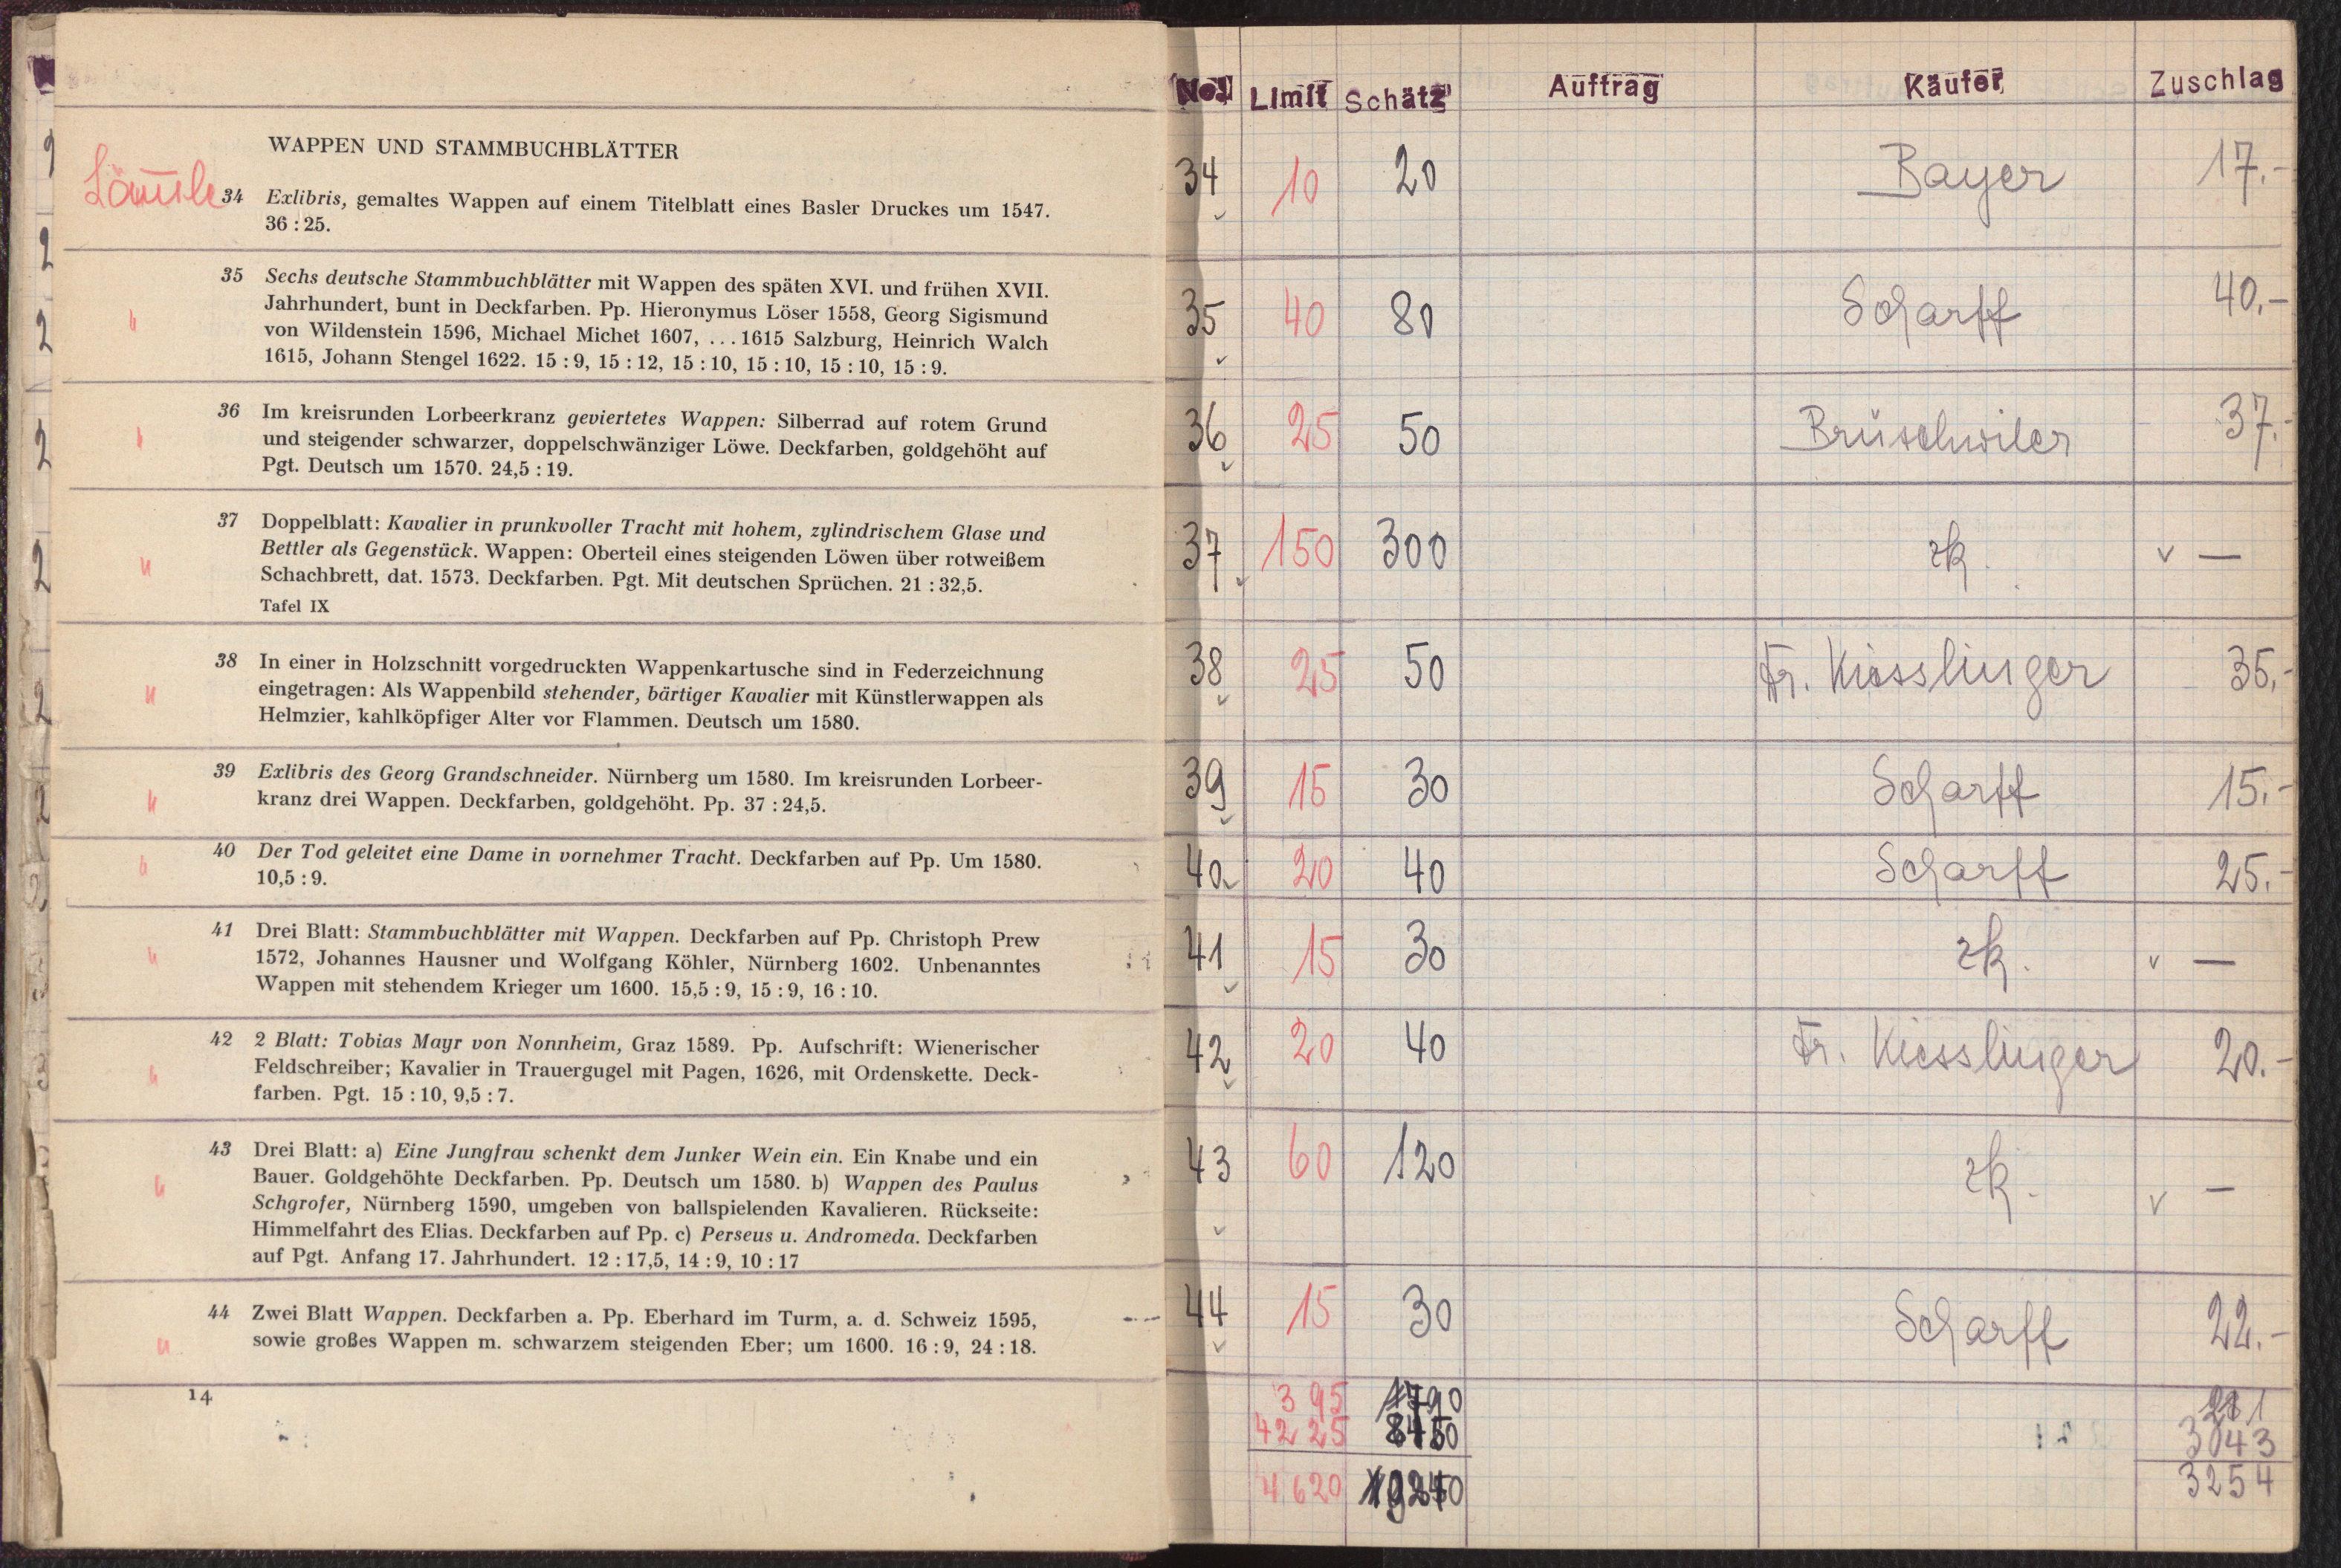 WAPPEN UND STAMMBUCHBLÄTTER
34 Exlibris, gemaltes Wappen auf einem Titelblatt eines Basler Druckes um 1547.
36 : 25.
35 Sechs deutsche Stammbuchblätter mit Wappen des späten XVI. und frühen XVII.
Jahrhundert, bunt in Deckfarben. Pp. Hieronymus Löser 1558, Georg Sigismund
von Wildenstein 1596, Michael Michet 1607, ...1615 Salzburg, Heinrich Walch
1615, Johann Stengel 1622. 15 : 9, 15 : 12, 15 : 10, 15 : 10, 15 : 10, 15 : 9.
36 Im kreisrunden Lorbeerkranz geviertetes Wappen: Silberrad auf rotem Grund
und steigender schwarzer, doppelschwänziger Löwe. Deckfarben, goldgehöht auf
Pgt. Deutsch um 1570. 24,5 : 19.
37 Doppelblatt: Kavalier in prunkvoller Tracht mit hohem, zylindrischem Glase und
Bettler als Gegenstück. Wappen: Oberteil eines steigenden Löwen über rotweißem
Schachbrett, dat. 1573. Deckfarben. Pgt. Mit deutschen Sprüchen. 21 : 32,5.
Tafel IX
38 In einer in Holzschnitt vorgedruckten Wappenkartusche sind in Federzeichnung
eingetragen: Als Wappenbild stehender, bärtiger Kavalier mit Künstlerwappen als
Helmzier, kahlköpfiger Alter vor Flammen. Deutsch um 1580.
39 Exlibris des Georg Grandschneider. Nürnberg um 1580. Im kreisrunden Lorbeer-
kranz drei Wappen. Deckfarben, goldgehöht. Pp. 37 : 24,5.
40 Der Tod geleitet eine Dame in vornehmer Tracht. Deckfarben auf Pp. Um 1580.
10,5 : 9.
41 Drei Blatt: Stammbuchblätter mit Wappen. Deckfarben auf Pp. Christoph Prew
1572, Johannes Hausner und Wolfgang Köhler, Nürnberg 1602. Unbenanntes
Wappen mit stehendem Krieger um 1600. 15,5 : 9, 15 : 9, 16 : 10.
42 2 Blatt: Tobias Mayr von Nonnheim, Graz 1589. Pp. Aufschrift: Wienerischer
Feldschreiber; Kavalier in Trauergugel mit Pagen, 1626, mit Ordenskette. Deck-
farben. Pgt. 15 : 10, 9,5 : 7.
43 Drei Blatt: a) Eine Jungfrau schenkt dem Junker Wein ein. Ein Knabe und ein
Bauer. Goldgehöhte Deckfarben. Pp. Deutsch um 1580. b) Wappen des Paulus
Schgrofer, Nürnberg 1590, umgeben von ballspielenden Kavalieren. Rückseite:
Himmelfahrt des Elias. Deckfarben auf Pp. c) Perseus u. Andromeda. Deckfarben
auf Pgt. Anfang 17. Jahrhundert. 12 : 17,5, 14 : 9, 10 : 17
44 Zwei Blatt Wappen. Deckfarben a. Pp. Eberhard im Turm, a. d. Schweiz 1595,
sowie großes Wappen m. schwarzem steigenden Eber; um 1600. 16 : 9, 24 : 18.
14
No. Limit Schätz Auftrag Käufer Zuschlag
34 10 20 Bayer 17.-
35 40 80 Scharff 40.-
36 25 50 Brüschwiler 37.-
37 150 300 zk. v —
38 25 50 Fr. Kiesslinger 35.-
39 15 30 Scharff 15.-
40 20 40 Scharff 25.-
41 15 30 zk. v —
42 20 40 Fr. Kiesslinger 20.-
43 60 120 zk. v —
44 15 30 Scharff 22.-
395 790
4225 8450 3043
4620 9240 3254